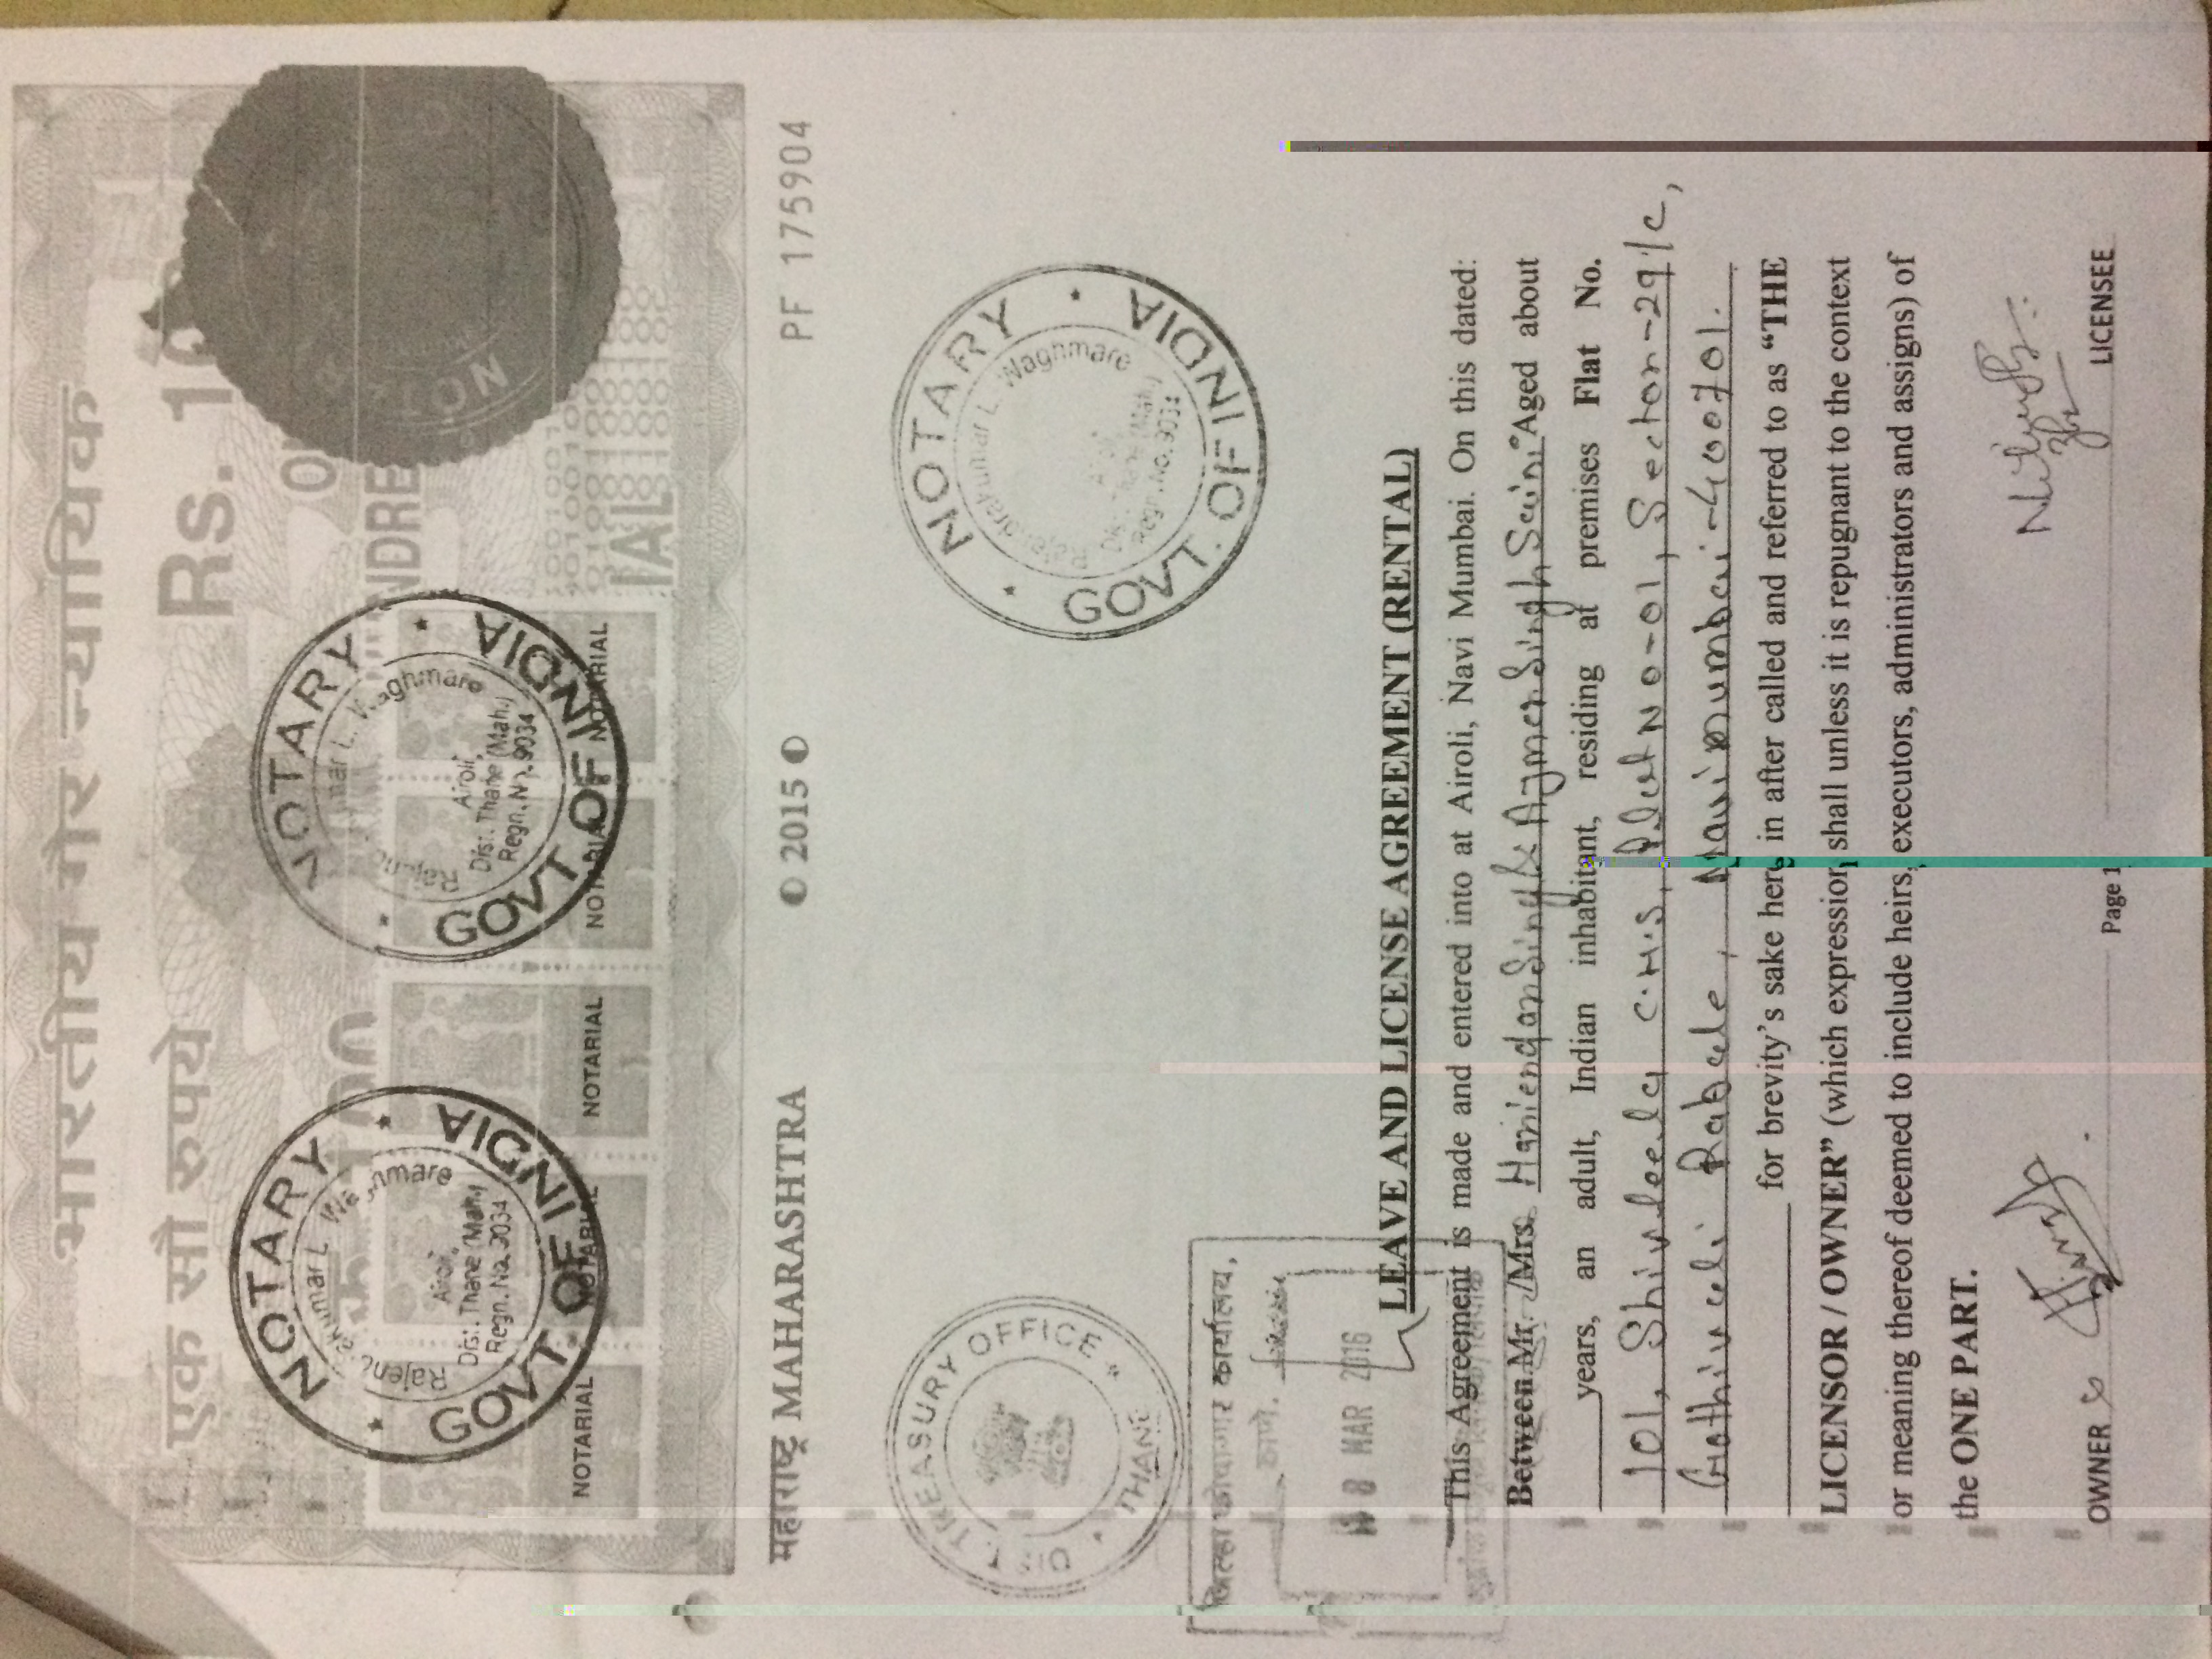 भारतीय गैर न्यायिक
एक सौ रुपये
Rs.
NOTARY
GOVT. OF INDIA
Airoli,
Dist. Thane (Mah.)
Regn. No. 9034
NOTARY
GOVT. OF INDIA
L. Waghmare
Airoli,
Dist. Thane (Mah.)
Regn. No. 9034
NOTARIAL NOTARIAL NOTARIAL NOTARIAL NOTARIAL
महाराष्ट्र MAHARASHTRA
2015
PF 175904
DIST. TREASURY OFFICE
THANE
NOTARY
Rajendrakumar L. Waghmare
Regn. No. 9034
GOVT. OF INDIA
जिल्हा कोषागार कार्यालय,
ठाणे.
8 MAR 2016
LEAVE AND LICENSE AGREEMENT (RENTAL)
This Agreement is made and entered into at Airoli, Navi Mumbai. On this dated:
Between Mr. /Mrs. & Singh Saini Aged about
years, an adult, Indian inhabitant, residing at premises Flat No.
101, Shivleela C.H.S, Plot No-01, Sector-29/C,
Gothivali Rabale, Navi mumbai-400701.
for brevity's sake here in after called and referred to as “THE
LICENSOR / OWNER” (which expression shall unless it is repugnant to the context
or meaning thereof deemed to include heirs, executors, administrators and assigns) of
the ONE PART.
OWNER
Page 1
LICENSEE